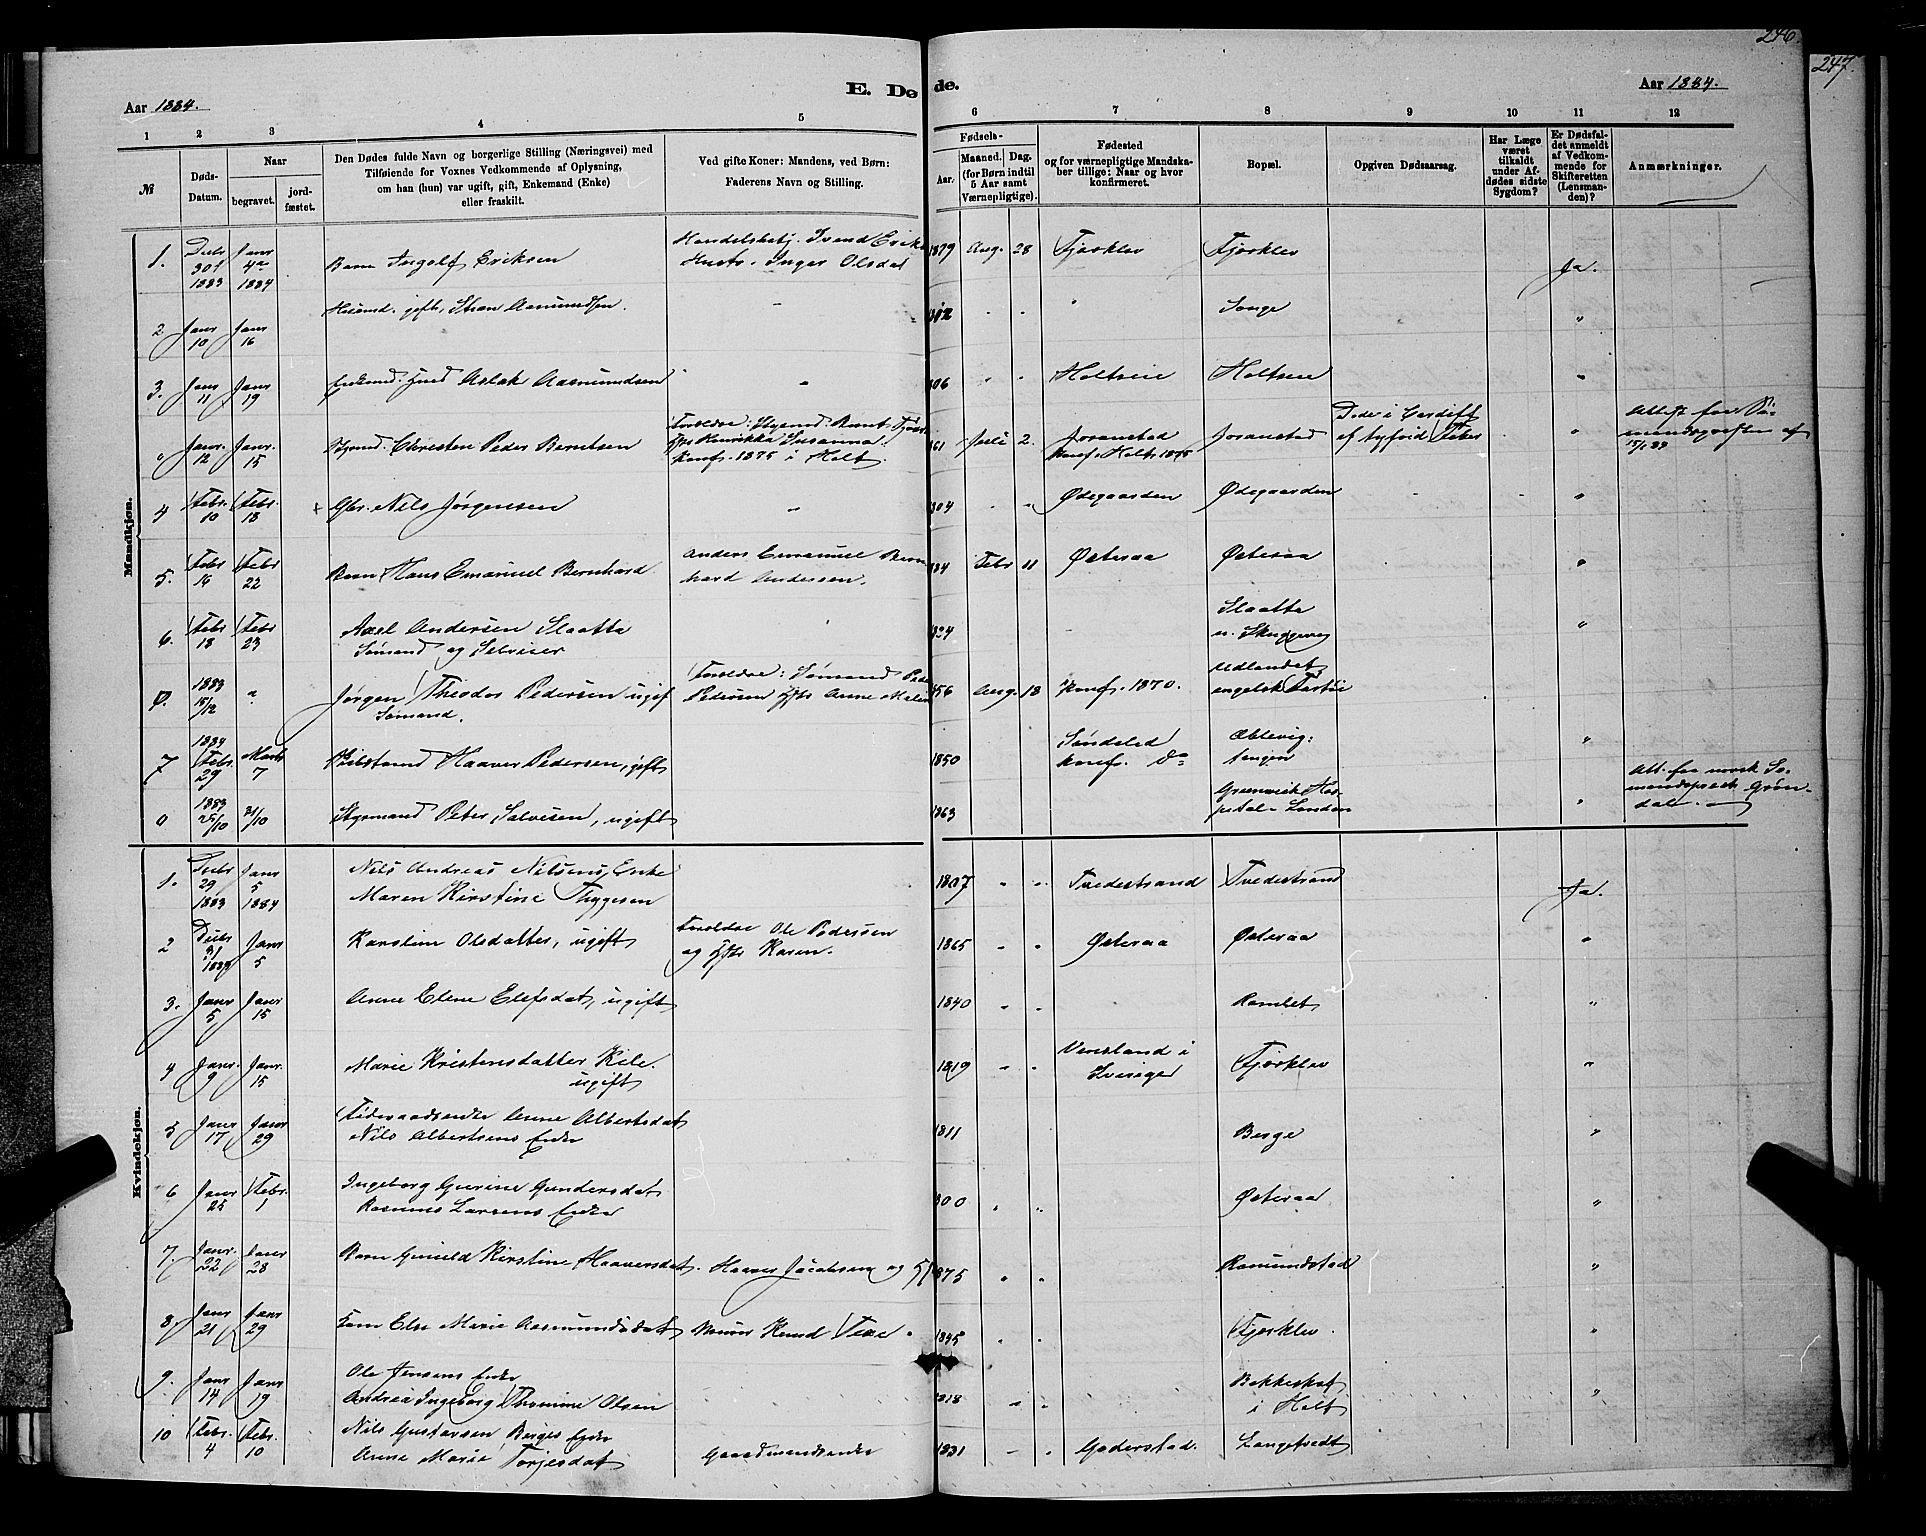 246.
247.
Aar 1884.
E. Døde.
Aar 1884.
1 2 3 4 5 6 7 8 9 10 11 12
№
Døds-
Datum.
Naar
begravet.
jord-
fæstet.
Den Dødes fulde Navn og borgerlige Stilling (Næringsvei) med
Tilføiende for Voxnes Vedkommende af Oplysning,
om han (hun) var ugift, gift, Enkemand (Enke)
eller fraskilt.
Ved gifte Koner: Mandens, ved Børn:
Faderens Navn og Stilling.
Fødsels-
Aar.
Maaned. Dag.
(for Børn indtil
5 Aar samt
Værnepligtige).
Fødested
og for værnepligtige Mandska-
ber tillige: Naar og hvor
konfirmeret.
Bopæl.
Opgiven Dødsaarsag.
Har Læge
været
tilkaldt
under Af-
dødes sidste
Sygdom?
Er Dødsfal-
det anmeldt
af Vedkom-
mende for
Skifteretten
(Lensman-
den)?
Anmærkninger.
Mandkjøn.
1. Decbr 30 1883 Janr 4de 1884 Barn Ingolf Eriksen Handelsbetj. Svend Erik
Hustr. Inger Olsdat 1879 Aug. 28 Fjærklev Fjærklev Ja.
2 Janr 10 Janr 16 Husmd. gift, Stian Aasmundsen. " Songe "
3. Janr 11 Janr 19 Enkemd. Aslak Aasmundsen " 806 Holtseie Holtseie "
" Janr. 12 Janr. 15 Styrmd. Christen Peder Berntsen Forældre: Styrmd Bernt
Henrikke Susanna.
Konf. 1875 i Holt. 61 Juli 2. Joranstad
Konf. Holt 1875 Joranstad Døde i Cardiff
af tyfoid Feber " Attest fra Sø-
mandspresten af
15/1 84
4 Febr. 10 Febr. 18 + Gbr. Nils Jørgensen " 804 Ødegaarden Ødegaarden "
5. Febr 16 Febr 22 Barn Hans Emanuel Bernhard. Anders Emanuel Bern
hard Andersen. 884 Febr 11 Østeraa Østeraa "
6. Febr 18 Febr 23 Axel Andersen Slaatta
Sømand og Selveier 1824 Slaatta
u. "
1883 15/12 " Jørgen Theodor Pedersen ugif
Sømand. Forældre: Sømand Pede
Pedersen Anne Malen 56 Aug. 18 Konf. 1870. Udlandet
engelsk
7 1884 Febr. 29 Marts 7 Haaver Pedersen, gift 1850 Søndeled
konf. Do Æblevig-
tangen "
0 1883 25/10 31/10 Styrmand Peter Salvesen, ugift 1863 Greenwich Hos-
pital London " Att. fra norsk Sø-
mandsprest Grøn-
dal.
Kvindekjøn.
1. Decbr 29 1883 Janr 5 1884 Nils Andreas Nilsens Enke
Maren Kirstine Thygesen 1807 " " Tvedestrand Tvedestrand Ja.
2 Decbr 31 1883 Janr 5 Karstine Olsdatter, ugift Forældre Ole Pedersen
og Karen. 1865 " " Østeraa Østeraa "
3. Janr 5 Janr 15 Anne Elene Elefsdat, ugift 1840 " " Ramlet "
4 Janr. 9 Janr. 15 Marie Kristensdatter Kile.
ugift 1819 " " Vermland i
Sverige Fjærklev "
5 Janr 17 Janr 29 Anne Albertsdat
Nils Albertsens Enke 1811 Berge "
6 Janr 25 Febr. 1 Ingeborg Gurine Gundersdat
Rasmus Larsens Enke 800 " " Østeraa "
7. Janr. 22 Janr 28 Barn Gunild Kirstine Haaversdat. Haaver Jacobsen og 875 " " Ramundstad "
8. Janr 21 Janr 29 Kone Else Marie Aasmundsdat Murer Knud 1845 " " Fjærklev. "
9. Janr 14 Janr 19 Ole Jensens Enke
Andrea Ingeborg Thomine Olsen 1818 " " Bakkeskat
i Holt "
10 Febr. 4 Febr. 10 Nils Gustavsen Berges Enke
Anne Marie Torjesdat Gaardmandsenke 1831 " " Gjerstad. Langetvedt "